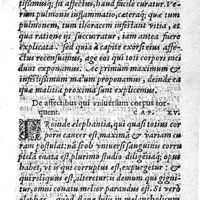 tissimusq; sit affectus, haud facile curatur. Ve-
rum pulmonis inflammatio, cæteraq; quæ tum
pulmonem, tum thoracem infestant mala, et
qua ratione ijs succurratur, iam antea fuere
explicata. Sed quia à capite exorsi eius affe-
ctus recensuimus, age eos qui toti corpori inci
dunt exponamus. Ac primum maximum &
infestissimum malum proponamus, deinde qua
magnitia proxima sunt explicemus.
De affectibus qui vniuersum corpus tor-
quent. CAP. XV.
Proinde elephantia, qui quasi totius cor
poris cancer est, maxima & variam cu
ram postulat: nã sub vniuersi sanguinis corru
ptela enata est plurimo studio diligẽtiaq; opus
habet, vt is qui corruptus est, expurgetur:
qui redundauit euocetur: is demum qui gigni-
tur, omni conatu melior parandus est. Si vero